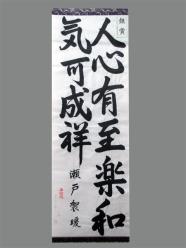 銀賞
人心有至楽和
気可成祥
瀬戸製瑗